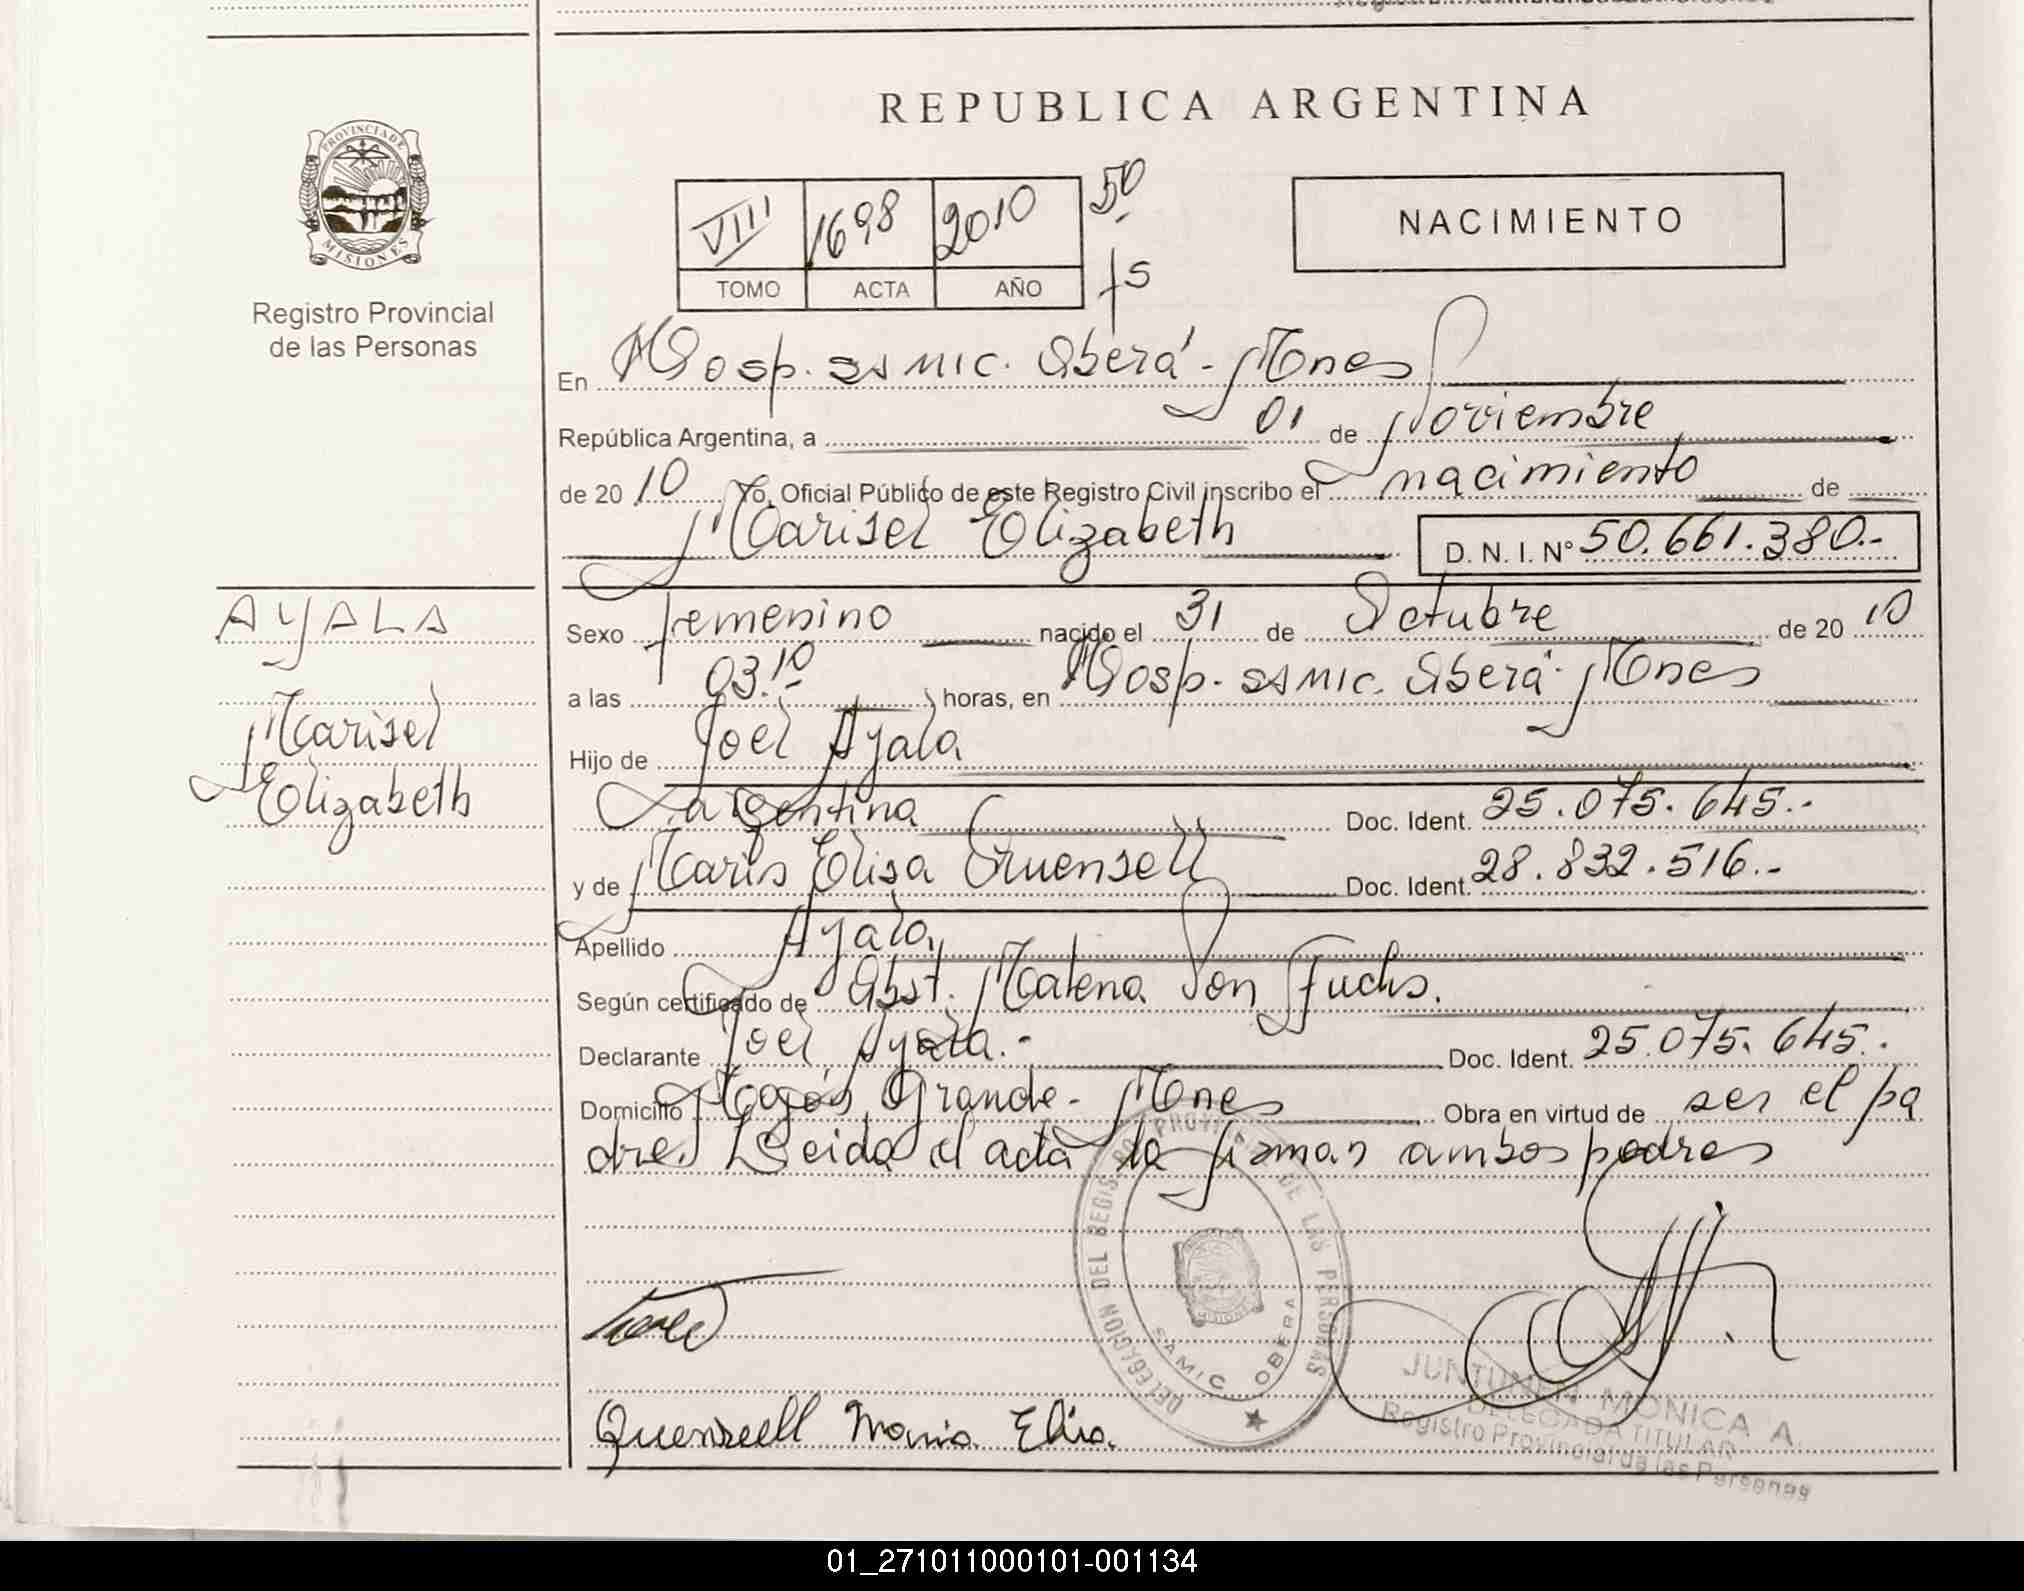 REPUBLICA ARGENTINA
PROVINCIA DE
MISIONES
Registro Provincial
de las Personas
VIII 1698 2010 50
TOMO ACTA AÑO fs
NACIMIENTO
En Hosp. SAMIC. Oberá - Mnes
República Argentina, a 01 de Noviembre
de 2010 Yo, Oficial Público de este Registro Civil inscribo el nacimiento de
Marisel Elizabeth D.N.I. Nº 50.661.380.-
AYALA
Marisel
Elizabeth
Sexo femenino nacido el 31 de Octubre de 2010
a las 03.10 horas, en Hosp. SAMIC. Oberá - Mnes
Hijo de Joel Ayala
argentina Doc. Ident. 25.075.645.-
y de Elisa Doc. Ident. 28.832.516.-
Apellido Ayala
Según certificado de Obst. Malena Von Fuchs.
Declarante Joel Ayala.- Doc. Ident. 25.075.645.-
Domicilio Grande - Mnes Obra en virtud de ser el pa
dre. Leida el acta la firman ambos padres
DELEGACION DEL REGISTRO PROVINCIAL DE LAS PERSONAS
MISIONES
SAMIC OBERA
JUNTUNEN MONICA A.
DELEGADA TITULAR
Registro Provincial de las Personas
01_271011000101-001134